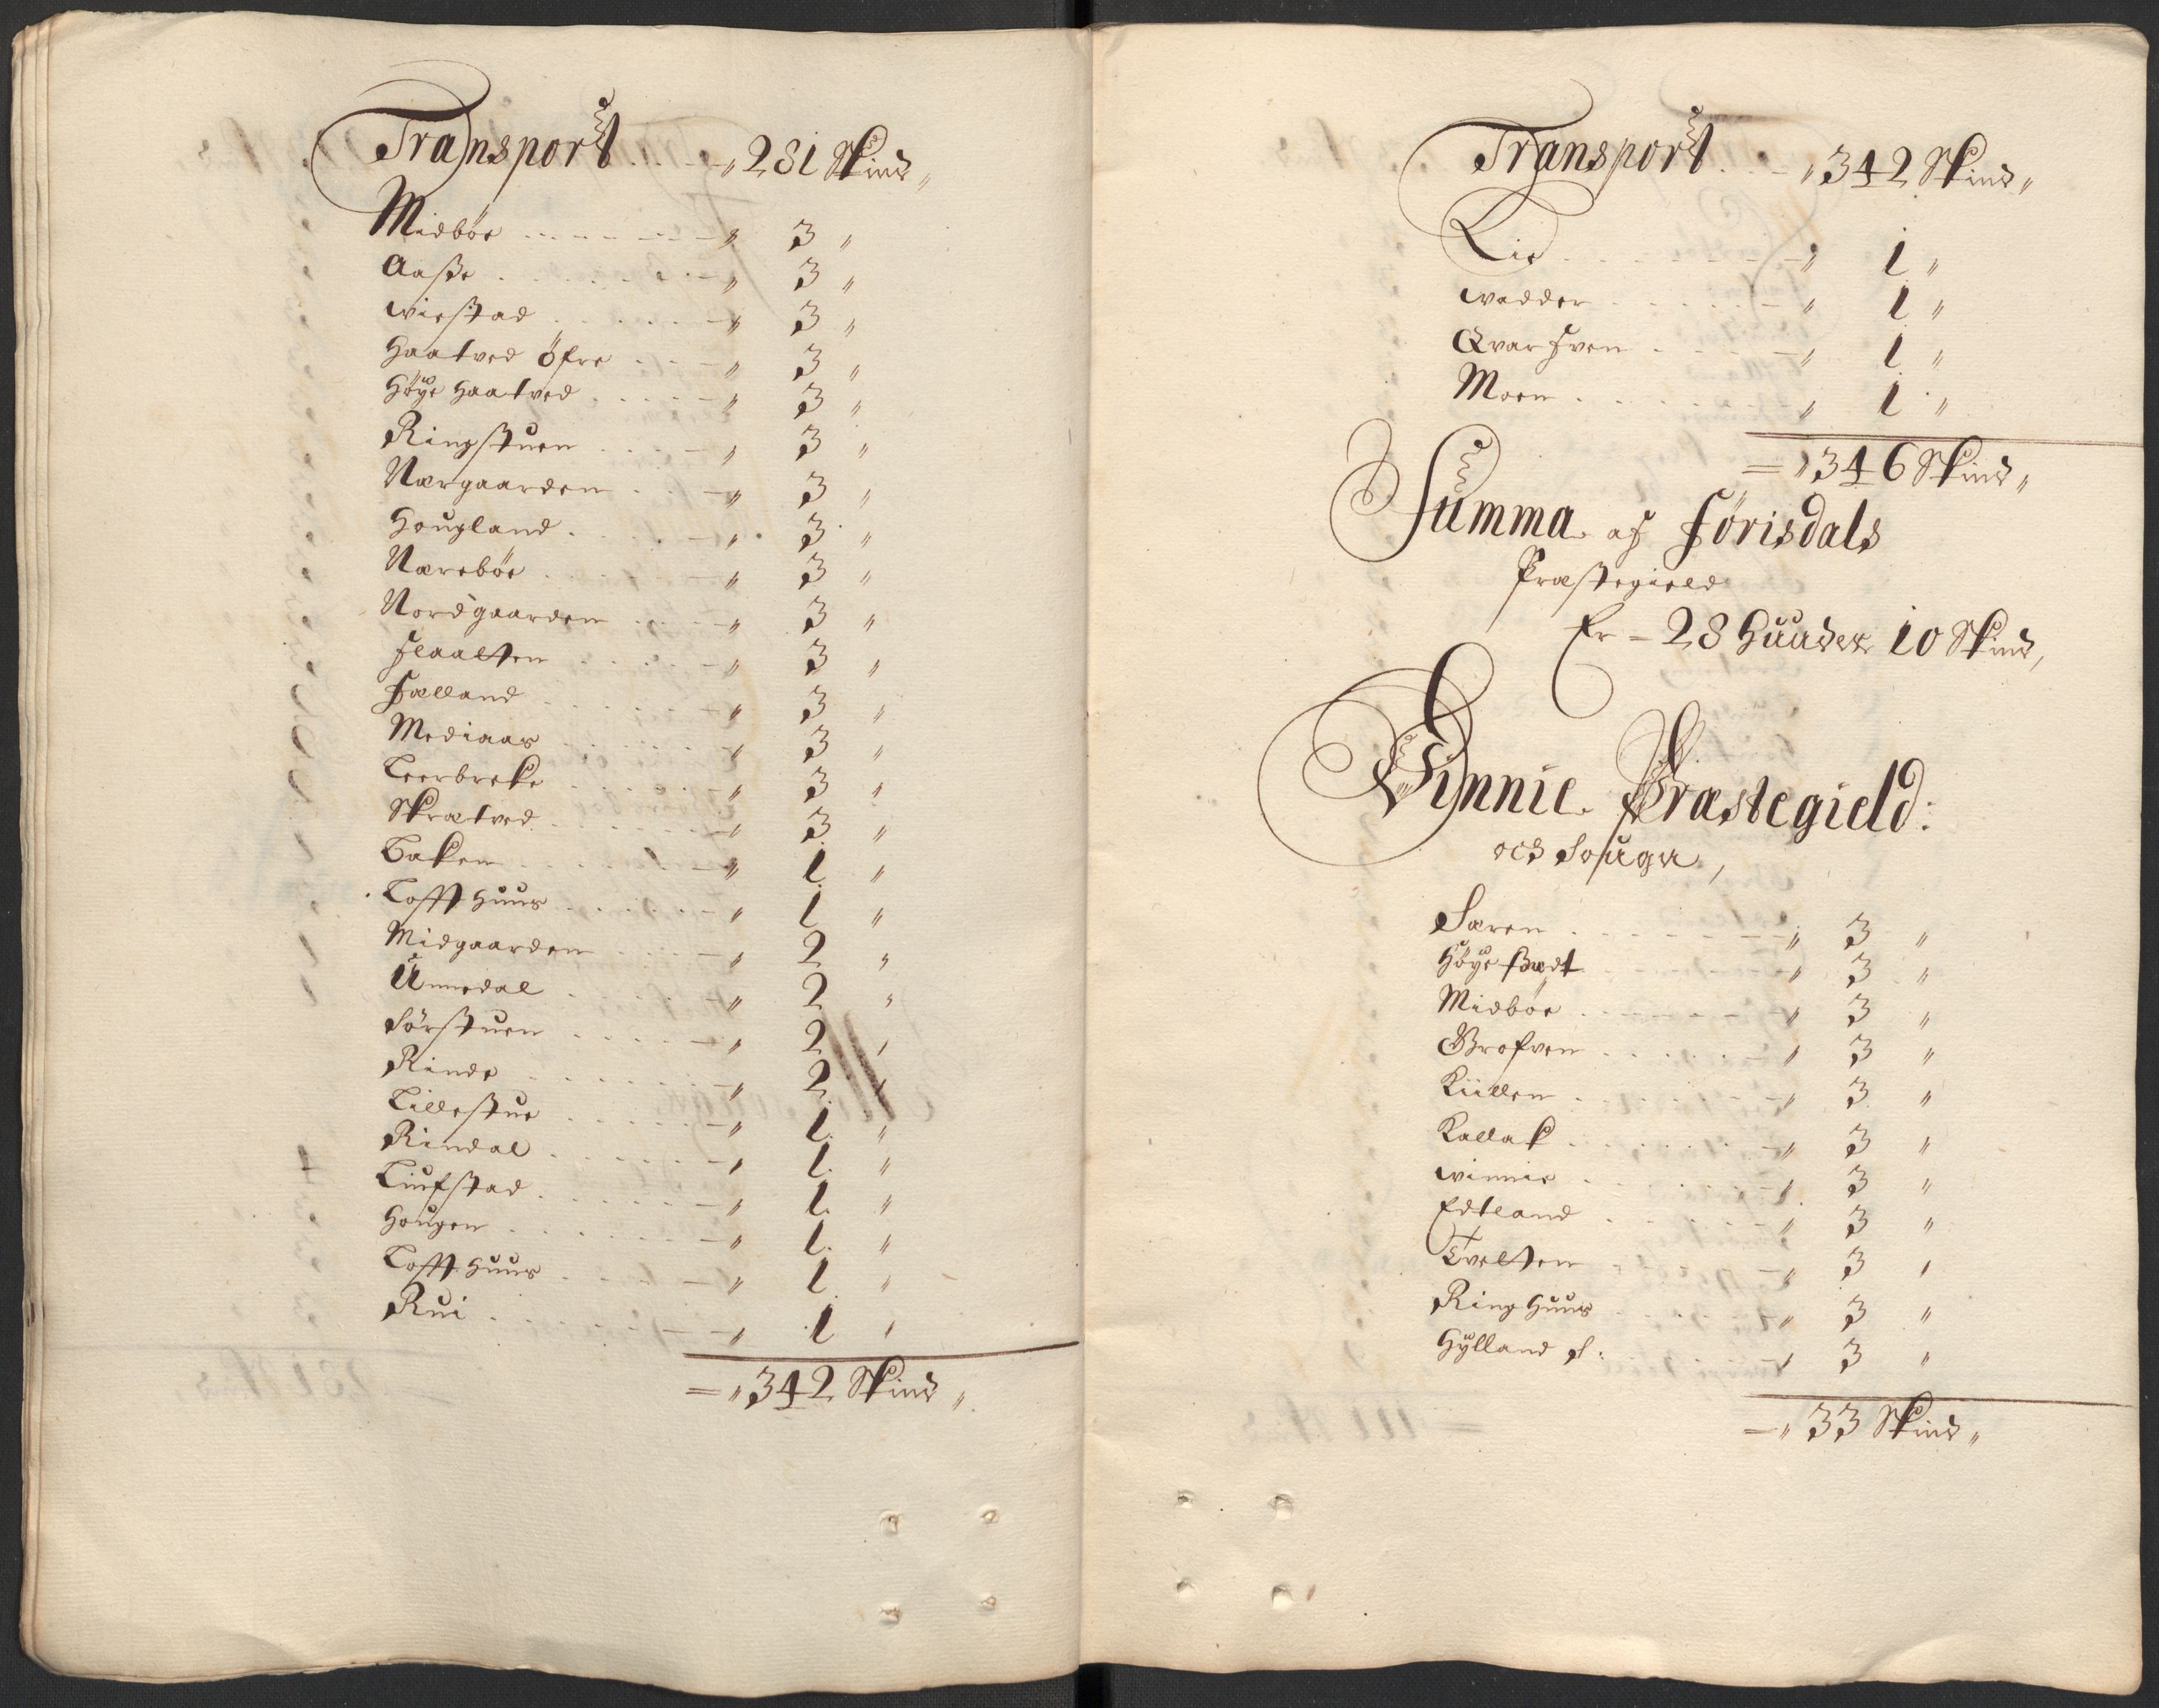 Transport . . . . „ 281 Skind „
Midbøe . . . . „ 3 „
Aasse . . . . „ 3 „
wiestad . . . . „ 3 „
Haatved öfre . . . „ 3 „
Höÿe Haatved . . . . „ 3 „
Ringstuen . . . . „ 3 „
Nærgaarden . . . „ 3 „
Hougland . . . . „ 3 „
Nærebøe . . . . „ 3 „
Nordgaarden . . . . „ 3 „
Flaatten . . . . „ 3 „
Felland . . . . „ 3 „
Mediaas . . . . „ 3 „
Leerbreke . . . . „ 3 „
Skrætved . . . . „ 3 „
Baken . . . . „ 1 „
Loffthuus . . . . „ 1 „
Midgaarden . . . . „ 2 „
Unnedal . . . . „ 2 „
Sørstuen . . . . „ 2 „
Rinde . . . . „ 2 „
Lillestue . . . . „ 1 „
Rindal . . . . „ 1 „
Liufstad . . . . „ 1 „
Hougen . . . . „ 1 „
Loffthuus . . . . „ 1 „
Rui . . . . „ 1 „
= „ 342 Skind „
Transport . . . „ 342 Skind „
Lie . . . . „ 1 „
wadder . . . . „ 1 „
Qvarfven . . . . „ 1 „
Moen . . . . „ 1 „
= „ 346 Skind „
Summa af Förisdals
Præstegield
Er - 28 Huuder 10 Skind,
Vinnie Præstegield:
och Sougn,
Særen . . . . „ 3 „
Höÿe
Midböe . . . . „ 3 „
Grofven . . . . „ 3 „
Kiillen . . . . „ 3 „
Kallak . . . . „ 3 „
winnie . . . . „ 3 „
Edland . . . . „ 3 „
Tvetten . . . „ 3 „
Ringhuus . . . „ 3 „
Hÿlland S: . . . „ 3 „
= „ 33 Skind „